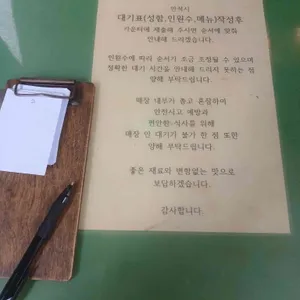 대기표(성함,인원수,메뉴)작성후
카운터에 제출해 주시면 순서에 맞춰
안내해 드리겠습니다.
인원수에 따라 순서가 조금 조정될 수 있으며
정확한 대기 시간을 안내해 드리지 못하는 점
양해 부탁드립니다.
매장 내부가 좁고 혼잡하여
안전사고 예방과
편안한 식사를 위해
매장 안 대기가 불가 한 점 또한
양해 부탁드립니다.
좋은 재료와 변함없는 맛으로
보답하겠습니다.
감사합니다.